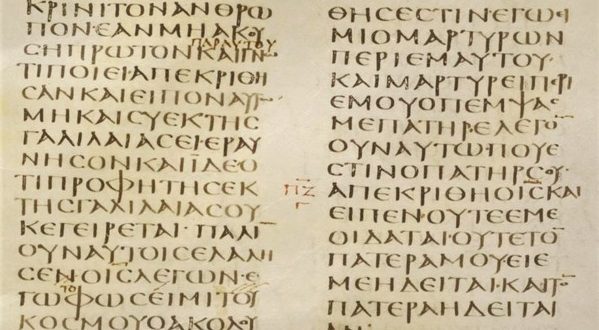 ΚΡΙΝΙΤΟΝΑΝΘΡΩ
ΠΟΝΕΑΝΜΗΑΚΟΥ
ΠΑΡΑΥΤΟΥ
ϹΗΠΡΩΤΟΝΚΑΙΓΝ
ΤΙΠΟΙΕΙΑΠΕΚΡΙΘΗ
ϹΑΝΚΑΙΕΙΠΟΝΑΥΤ
ΜΗΚΑΙϹΥΕΚΤΗϹ
ΓΑΛΙΛΑΙΑϹΕΙΕΡΑΥ
ΝΗϹΟΝΚΑΙΪΔΕΟ
ΤΙΠΡΟΦΗΤΗϹΕΚ
ΤΗϹΓΑΛΙΛΑΙΑϹΟΥ
ΚΕΓΕΙΡΕΤΑΙΠΑΛΙ
ΟΥΝΑΥΤΟΙϹΕΛΑΛΙ
ϹΕΝΟΙϹΛΕΓΩΝΕ
ΤΟ
ΓΩΦΩϹΕΙΜΙΤΟΥ
ΚΟϹΜΟΥΟΑΚΟΛΟΥ
ΠΖ
Γ
ΘΗϹΕϹΤΙΝΕΓΩΪ
ΜΙΟΜΑΡΤΥΡΩΝ
ΠΕΡΙΕΜΑΥΤΟΥ
ΚΑΙΜΑΡΤΥΡΕΙΠΕΡΙ
ΕΜΟΥΟΠΕΜΨΑϹ
ΜΕΠΑΤΗΡΕΛΕΓΟ
ΟΥΝΑΥΤΩΠΟΥΕ
ϹΤΙΝΟΠΑΤΗΡϹΟΥ
ΑΠΕΚΡΙΘΗΟΙϹΚΑΙ
ΕΙΠΕΝΟΥΤΕΕΜΕ
ΟΙΔΑΤΑΙΟΥΤΕΤΟ
ΠΑΤΕΡΑΜΟΥΕΙΕ
ΜΕΗΔΕΙΤΑΙΚΑΙΤΟ
ΠΑΤΕΡΑΗΔΕΙΤΑΙ